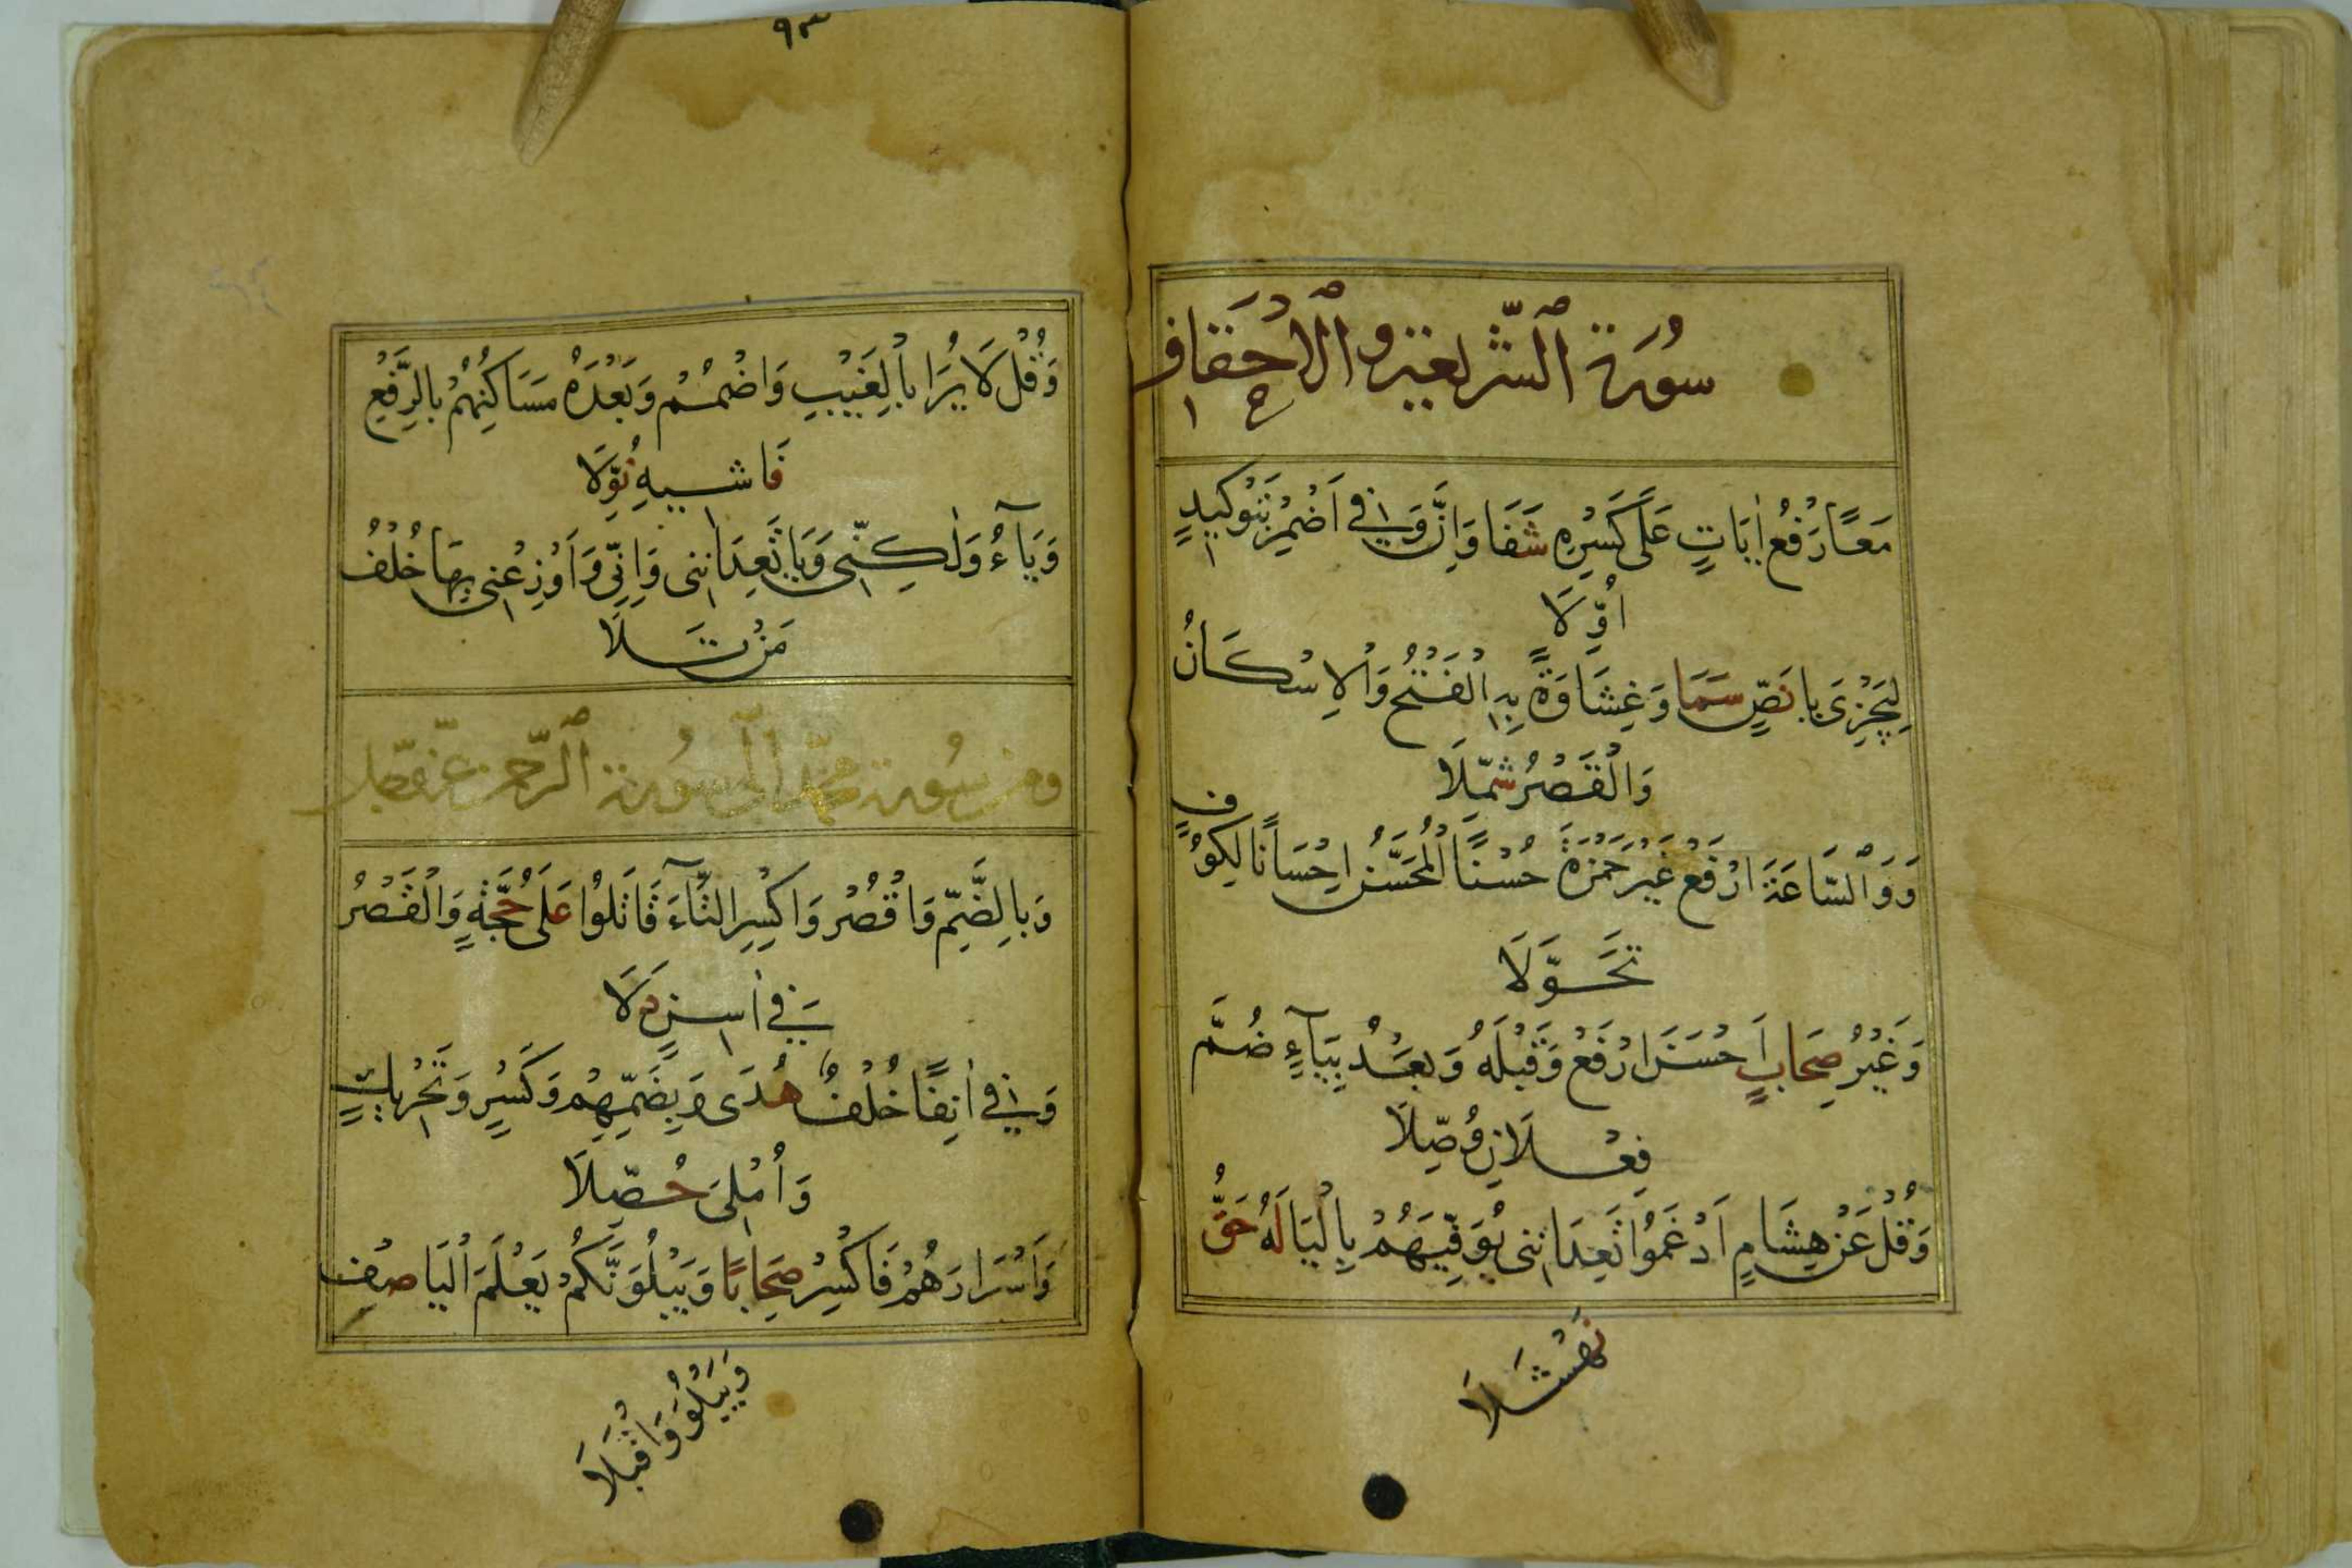 سُورَةُ ٱلشَّرِيعَةِ وَٱلْأَحْقَافِ
مَعًا رَفْعُ اٰيَاتٍ عَلَى كَسْرِهِ شَفَا وَاِنَّ وَفِي اَضْمِرْ بِتَوْكِيدٍ
اُوِّلَا
لِيَجْزِىَ يَا نَصٍّ سَمَا وَغِشَاوَةً بِهِ الْفَتْحُ وَالْاِسْكَانُ
وَالْقَصْرُ شُمِّلَا
وَوَالسَّاعَةَ ارْفَعْ غَيْرَ حَمْزَةَ حُسْنًا الْمُحَسَّنُ اِحْسَانًا لِكُوفٍ
تَحَوَّلَا
وَغَيْرُ صِحَابٍ اَحْسَنَ ارْفَعْ وَقَبْلَهُ وَبَعْدُ بِيَآءٍ ضُمَّ
فِعْلَانِ وُصِّلَا
وَقُلْ عَنْ هِشَامٍ اَدْغَمُوا تَعِدَانِنِى يُوَفِّيَهُمْ بِالْيَا لَهُ حَقُّ
نَهْشَلَا
٩٣
وَقُلْ لَا يُرَا بِالْغَيْبِ وَاضْمُمْ وَبَعْدَهُ مَسَاكِنُهُمْ بِالرَّفْعِ
فَاشِيهِ نُوِّلَا
وَيَآءُ وَلٰكِنِّى وَيَا تَعِدَانِنِى وَاِنِّي وَاَوْزِعْنِى بِهَا خُلْفُ
مَنْ تَلَا
ومن سُورة محمّد الى سُورة ٱلرّحمن عزّ وجلّ
وَبِالضَّمِّ وَاقْصُرْ وَاكْسِرِ التَّآءَ قَاتَلُوا عَلَى حُجَّةٍ وَالْقَصْرُ
فِي اٰسِنٍ دَلَا
وَفِي اٰنِفًا خُلْفٌ هُدَى وَبِضَمِّهِمْ وَكَسْرٍ وَتَحْرِيكٍ
وَاُمْلِىَ حُصِّلَا
وَاَسْرَارَهُمْ فَاكْسِرْ صِحَابًا وَيَبْلُوَنَّكُمْ يَعْلَمَ الْيَا صِفْ
وَيَبْلُوَ وَاقْبَلَا